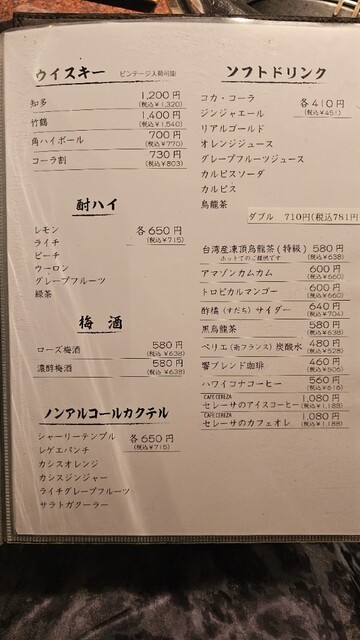 ウイスキー ビンテージ入荷可能
知多 1,200円
(税込¥1,320)
竹鶴 1,400円
(税込¥1,540)
角ハイボール 700円
(税込¥770)
コーラ割 730円
(税込¥803)
酎ハイ
レモン 各650円
(税込¥715)
ライチ
ピーチ
ウーロン
グレープフルーツ
緑茶
梅酒
ローズ梅酒 580円
(税込¥638)
濃醇梅酒 580円
(税込¥638)
ノンアルコールカクテル
シャーリーテンプル 各650円
(税込¥715)
レゲエパンチ
カシスオレンジ
カシスジンジャー
ライチグレープフルーツ
サラトガクーラー
ソフトドリンク
コカ・コーラ 各410円
(税込¥451)
ジンジャエール
リアルゴールド
オレンジジュース
グレープフルーツジュース
カルピスソーダ
カルピス
烏龍茶
ダブル 710円(税込781円
台湾産凍頂烏龍茶(特級) 580円
ホットでのご提供です (税込¥638)
アマゾンカムカム 600円
(税込¥660)
トロピカルマンゴー 600円
(税込¥660)
酢橘(すだち)サイダー 640円
(税込¥704)
黒烏龍茶 580円
(税込¥638)
ペリエ(南フランス)炭酸水 480円
(税込¥528)
響ブレンド珈琲 460円
(税込¥506)
ハワイコナコーヒー 560円
(税込¥616)
CAFE CEREZA
セレーサのアイスコーヒー 1,080円
(税込¥1,188)
CAFE CEREZA
セレーサのカフェオレ 1,080円
(税込¥1,188)